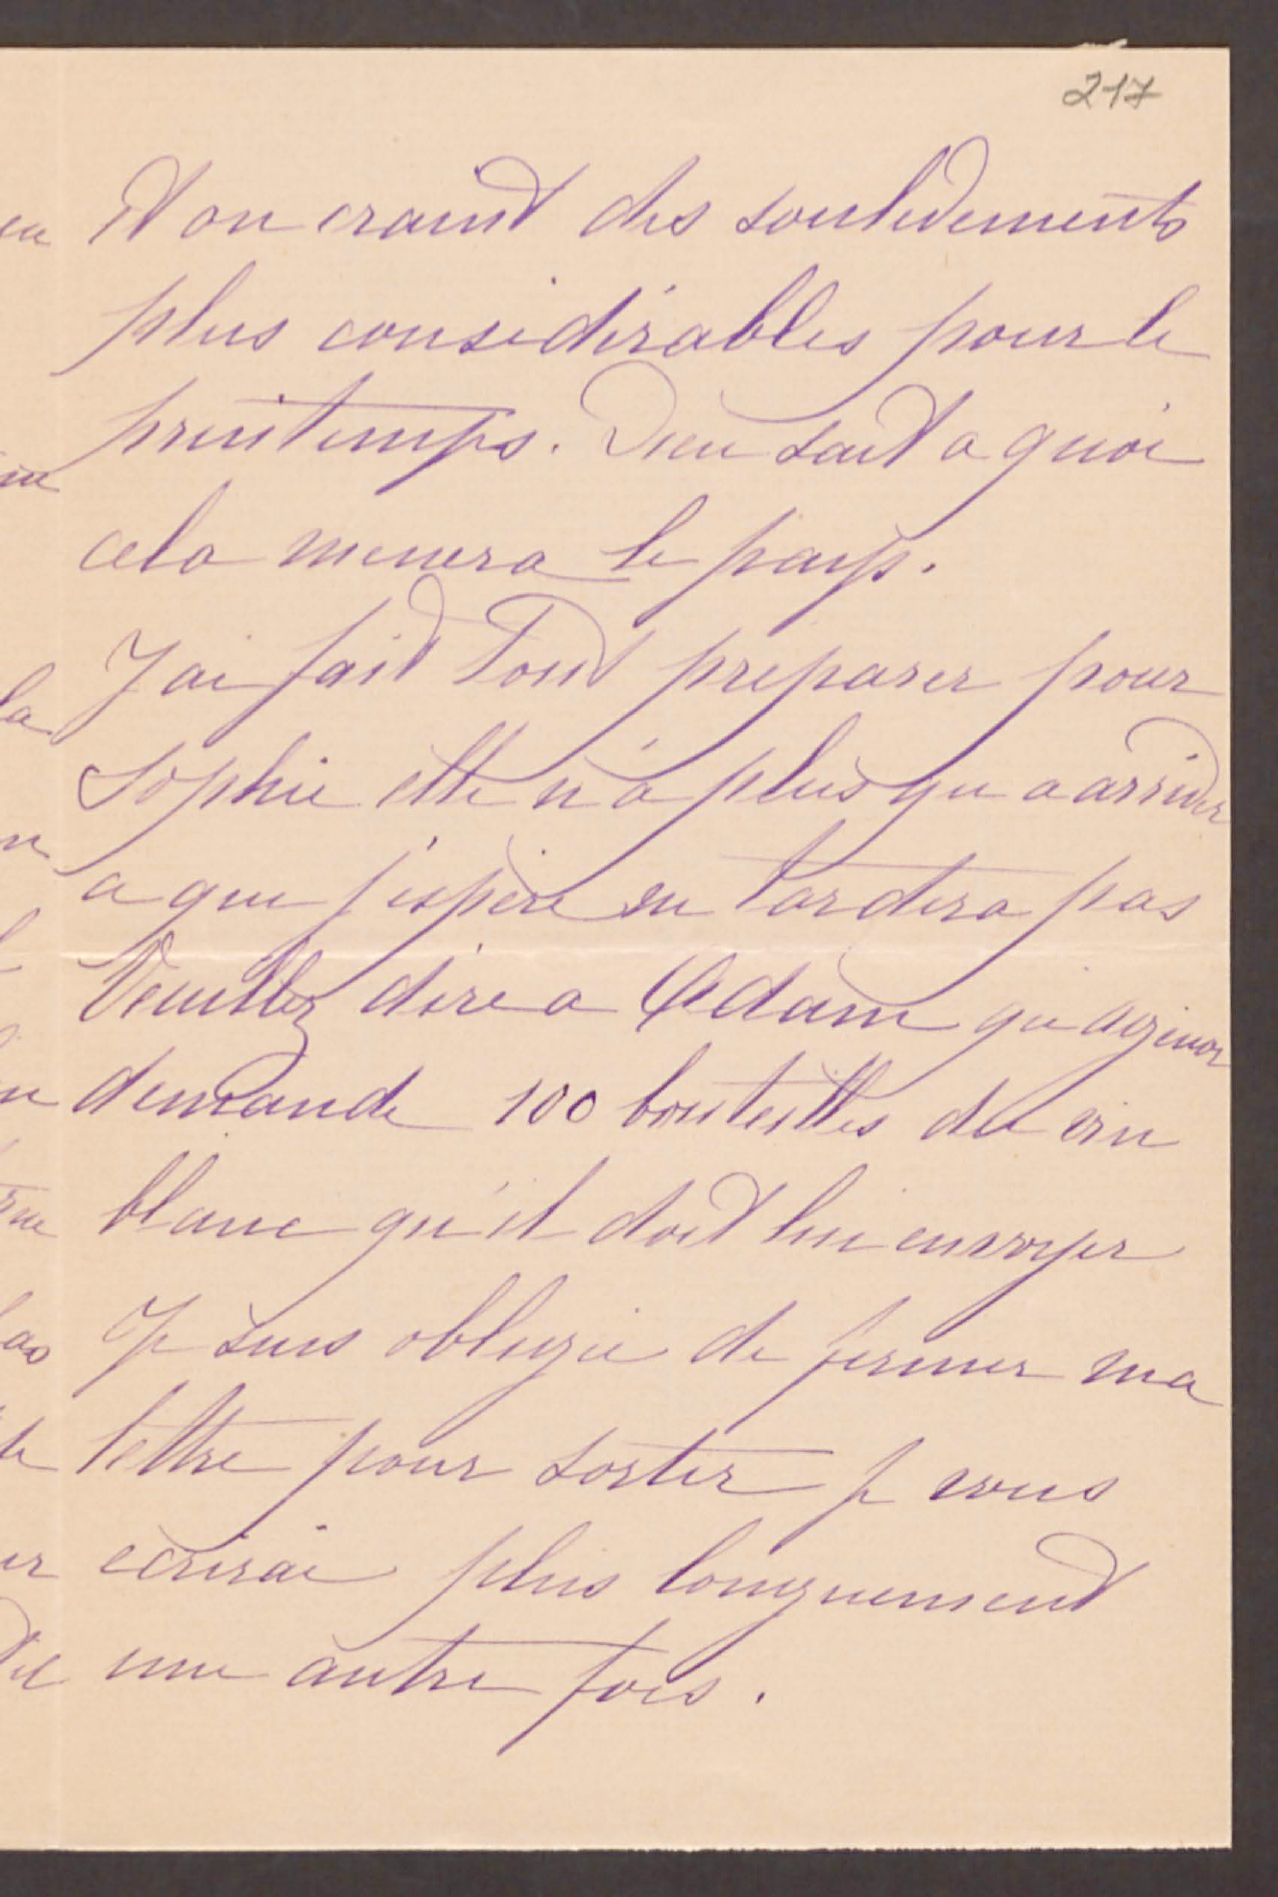 217
Et on craint des soulevements
plus considérables pour le
printemps. Dieu sait a quoi
cela menera le pays.
J'ai fait tout preparer pour
Sophie elle n'a plus qu a arriver
a que j'espère ne tardera pas
Veuillez dire a Adam qu
demande 100 bouteilles de vin
blanc qu'il doit lui envoyer
Je suis obligée de fermer ma
lettre pour sortir je vous
ecrirai plus longuement
une autre fois.